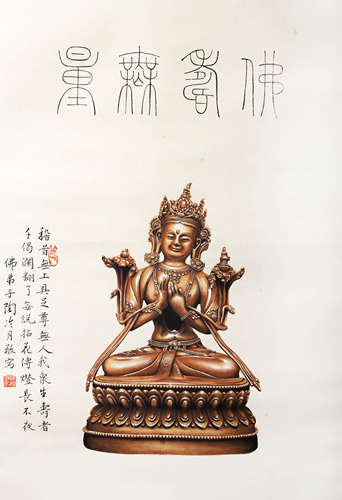 佛壽無量
稽首無上具足尊無人我衆生壽者
千偈瀾翻了無說拈花傳燈長不夜
佛弟子陶冷月敬寫